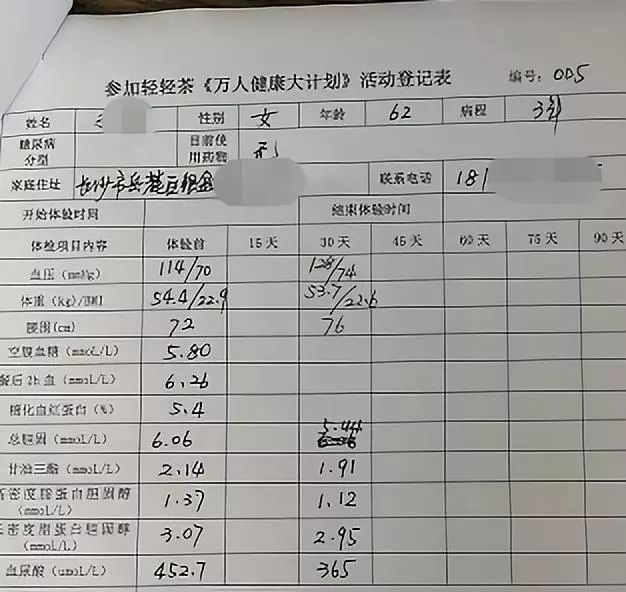 参加轻轻茶《万人健康大计划》活动登记表 编号: 005
姓名 性别 女 年龄 62 病程 3年
糖尿病分型 目前使用药物 无
家庭住址 长沙市岳麓区银盆 联系电话 181
开始体验时间 结束体验时间
体验项目内容 体验前 15天 30天 45天 60天 75天 90天
血压(mmHg) 114/70 128/74
体重(Kg)/BMI 54.4/22.9 53.7/22.6
腰围(cm) 72 76
空腹血糖(mmoL/L) 5.80
餐后2h血(mmoL/L) 6.26
糖化血红蛋白(%) 5.4
总胆固(mmoL/L) 6.06 5.44
甘油三酯(mmoL/L) 2.14 1.91
高密度脂蛋白胆固醇(mmoL/L) 1.37 1.12
低密度脂蛋白胆固醇(mmoL/L) 3.07 2.95
血尿酸(umoL/L) 452.7 365